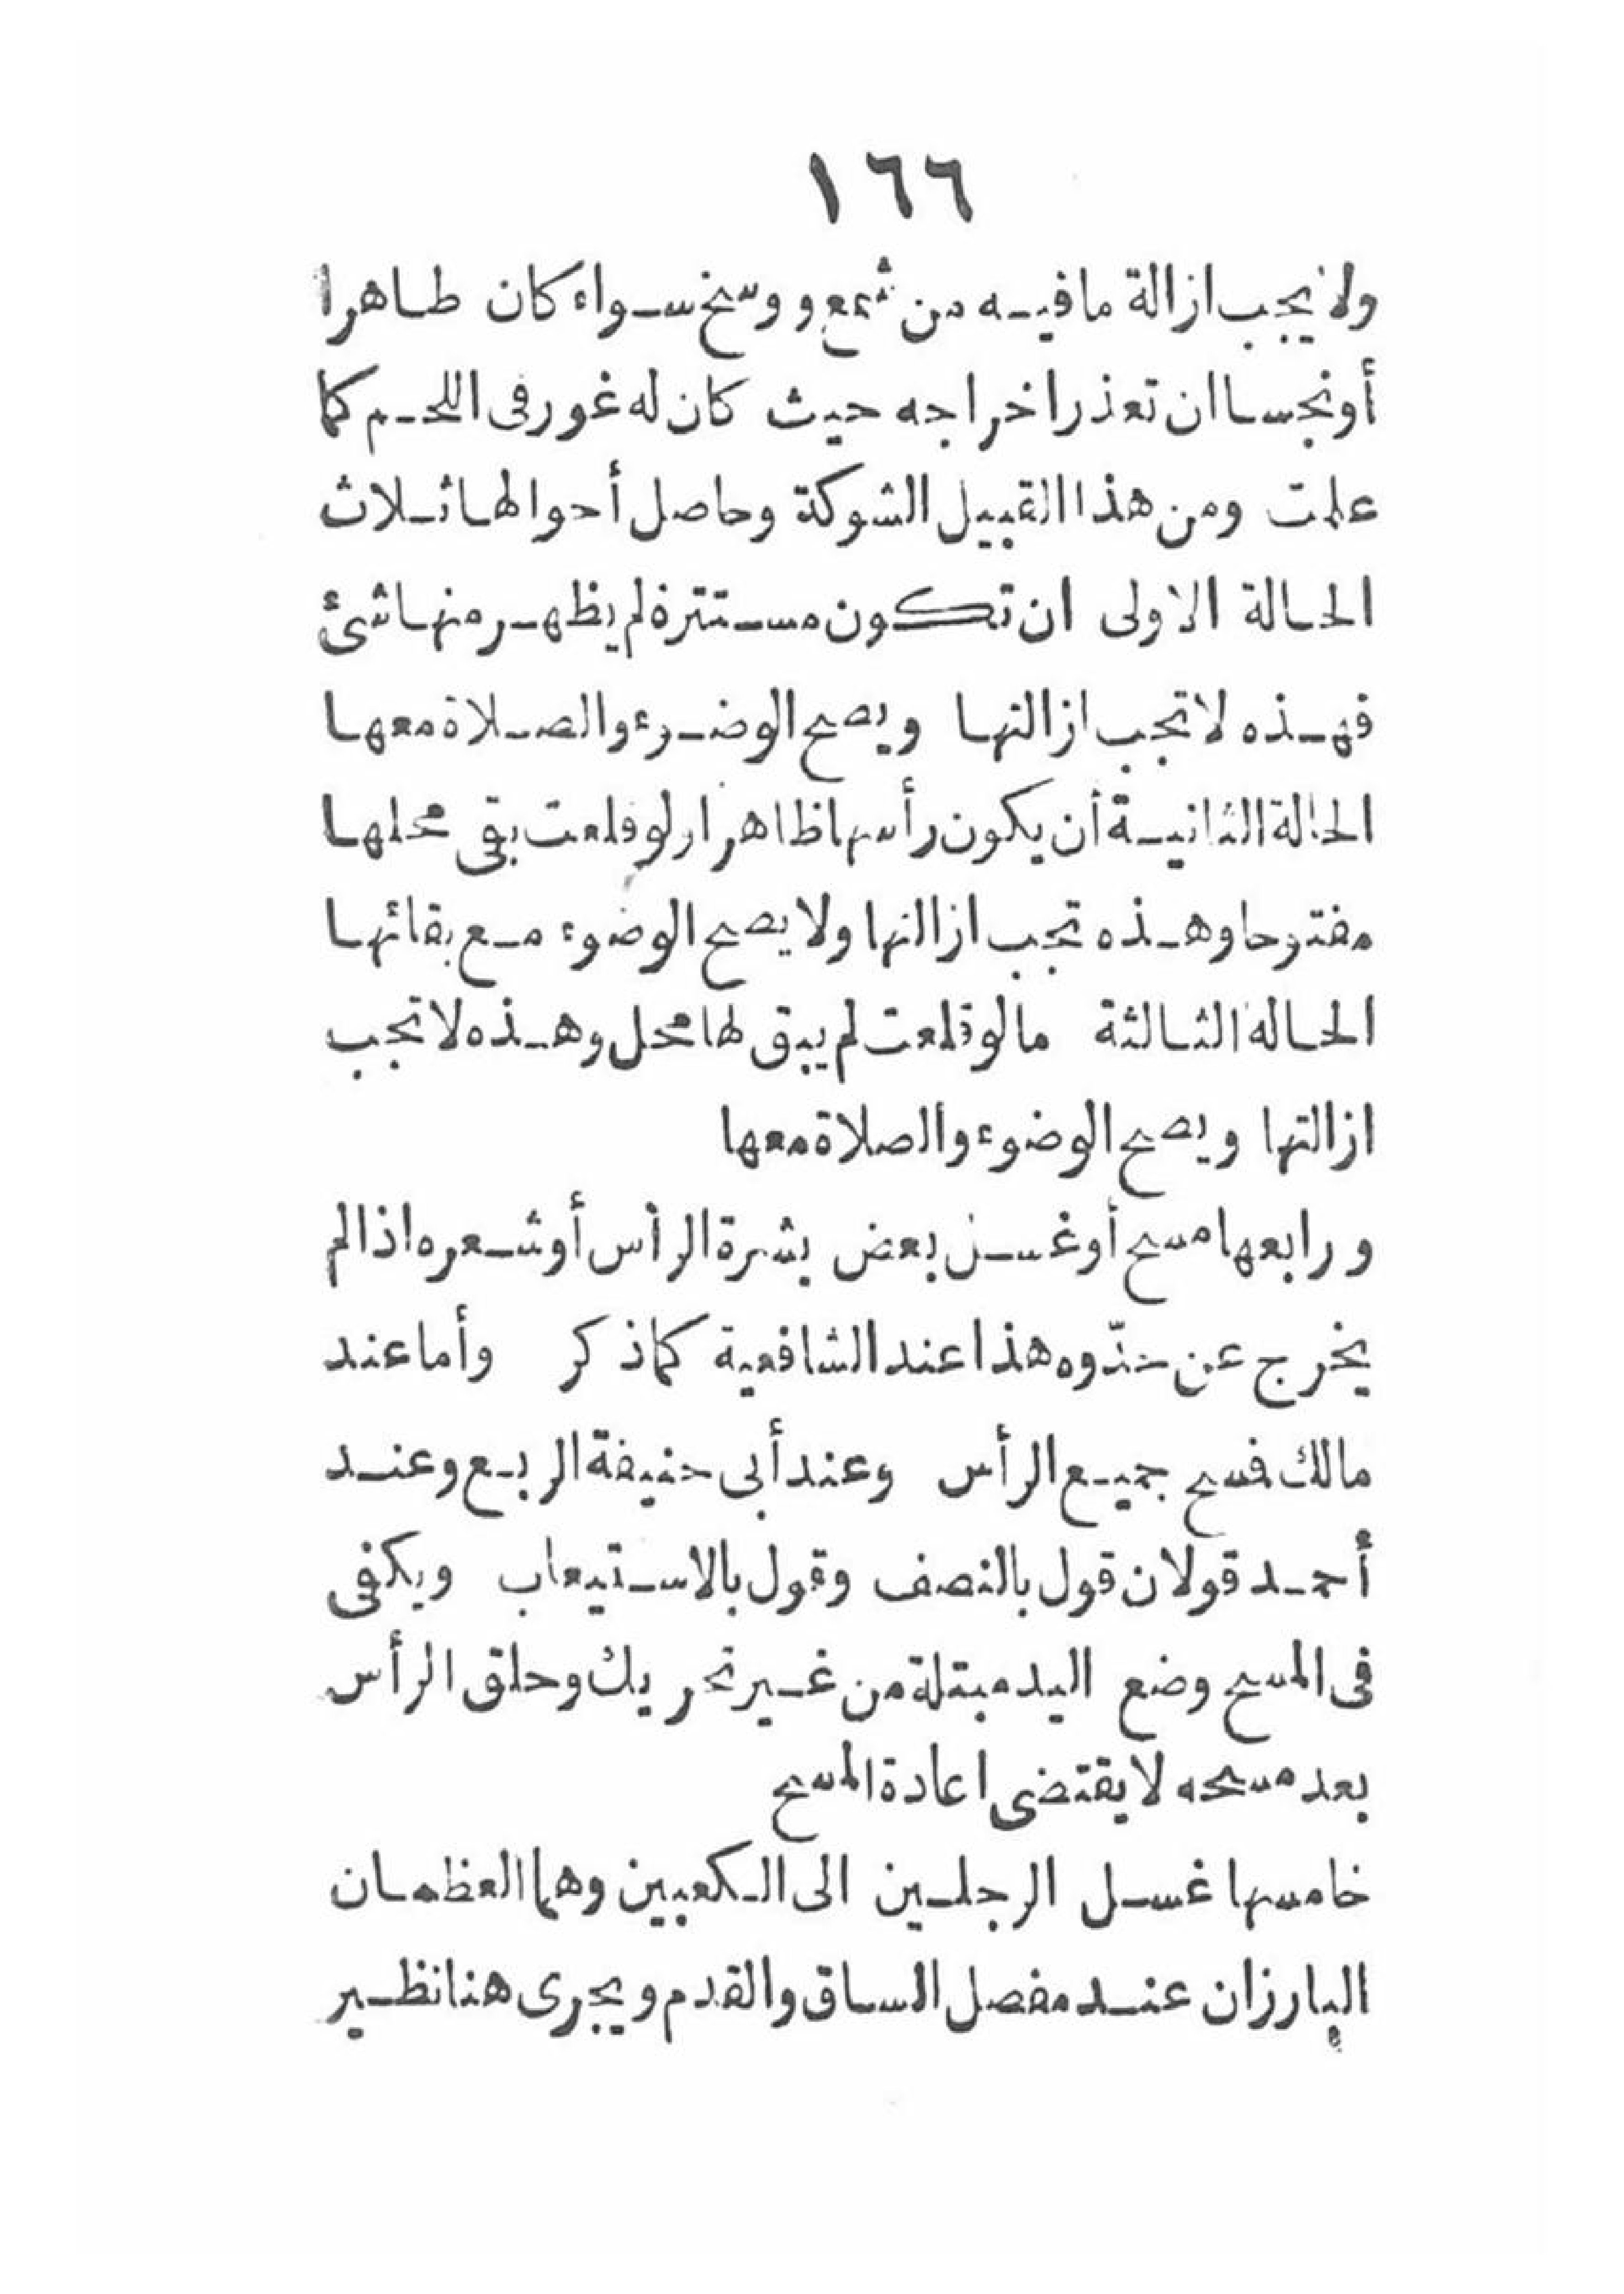 ١٦٦
ولا يجب ازالة ما فيه من شمع و وسخ سواء كان طاهرا
أو نجسا ان تعذر اخراجه حيث كان له غور فى اللحم كما
علمت ومن هذا القبيل الشوكة وحاصل أحوالها ثلاث
الحالة الاولى ان تكون مستترة لم يظهر منها شئ
فهذه لا تجب ازالتها ويصح الوضوء والصلاة معها
الحالة الثانية أن يكون رأسها ظاهرا ولو قلعت بقى محلها
مفتوحا وهذه تجب ازالتها ولا يصح الوضوء مع بقائها
الحالة الثالثة ما لو قلعت لم يبق لها محل وهذه لا تجب
ازالتها ويصح الوضوء والصلاة معها
و رابعها مسح أو غسل بعض بشرة الرأس أو شعره اذا لم
يخرج عن حدّه وهذا عند الشافعية كما ذكر وأما عند
مالك فسح جميع الرأس وعند أبى حنيفة الربع وعند
أحمد قولان قول بالنصف وقول بالاستيعاب ويكفى
فى المسح وضع اليد مبتلة من غير تحريك وحلق الرأس
بعد مسحه لا يقتضى اعادة المسح
خامسها غسل الرجلين الى الكعبين وهما العظمان
البارزان عند مفصل الساق والقدم ويجرى هنا نظير